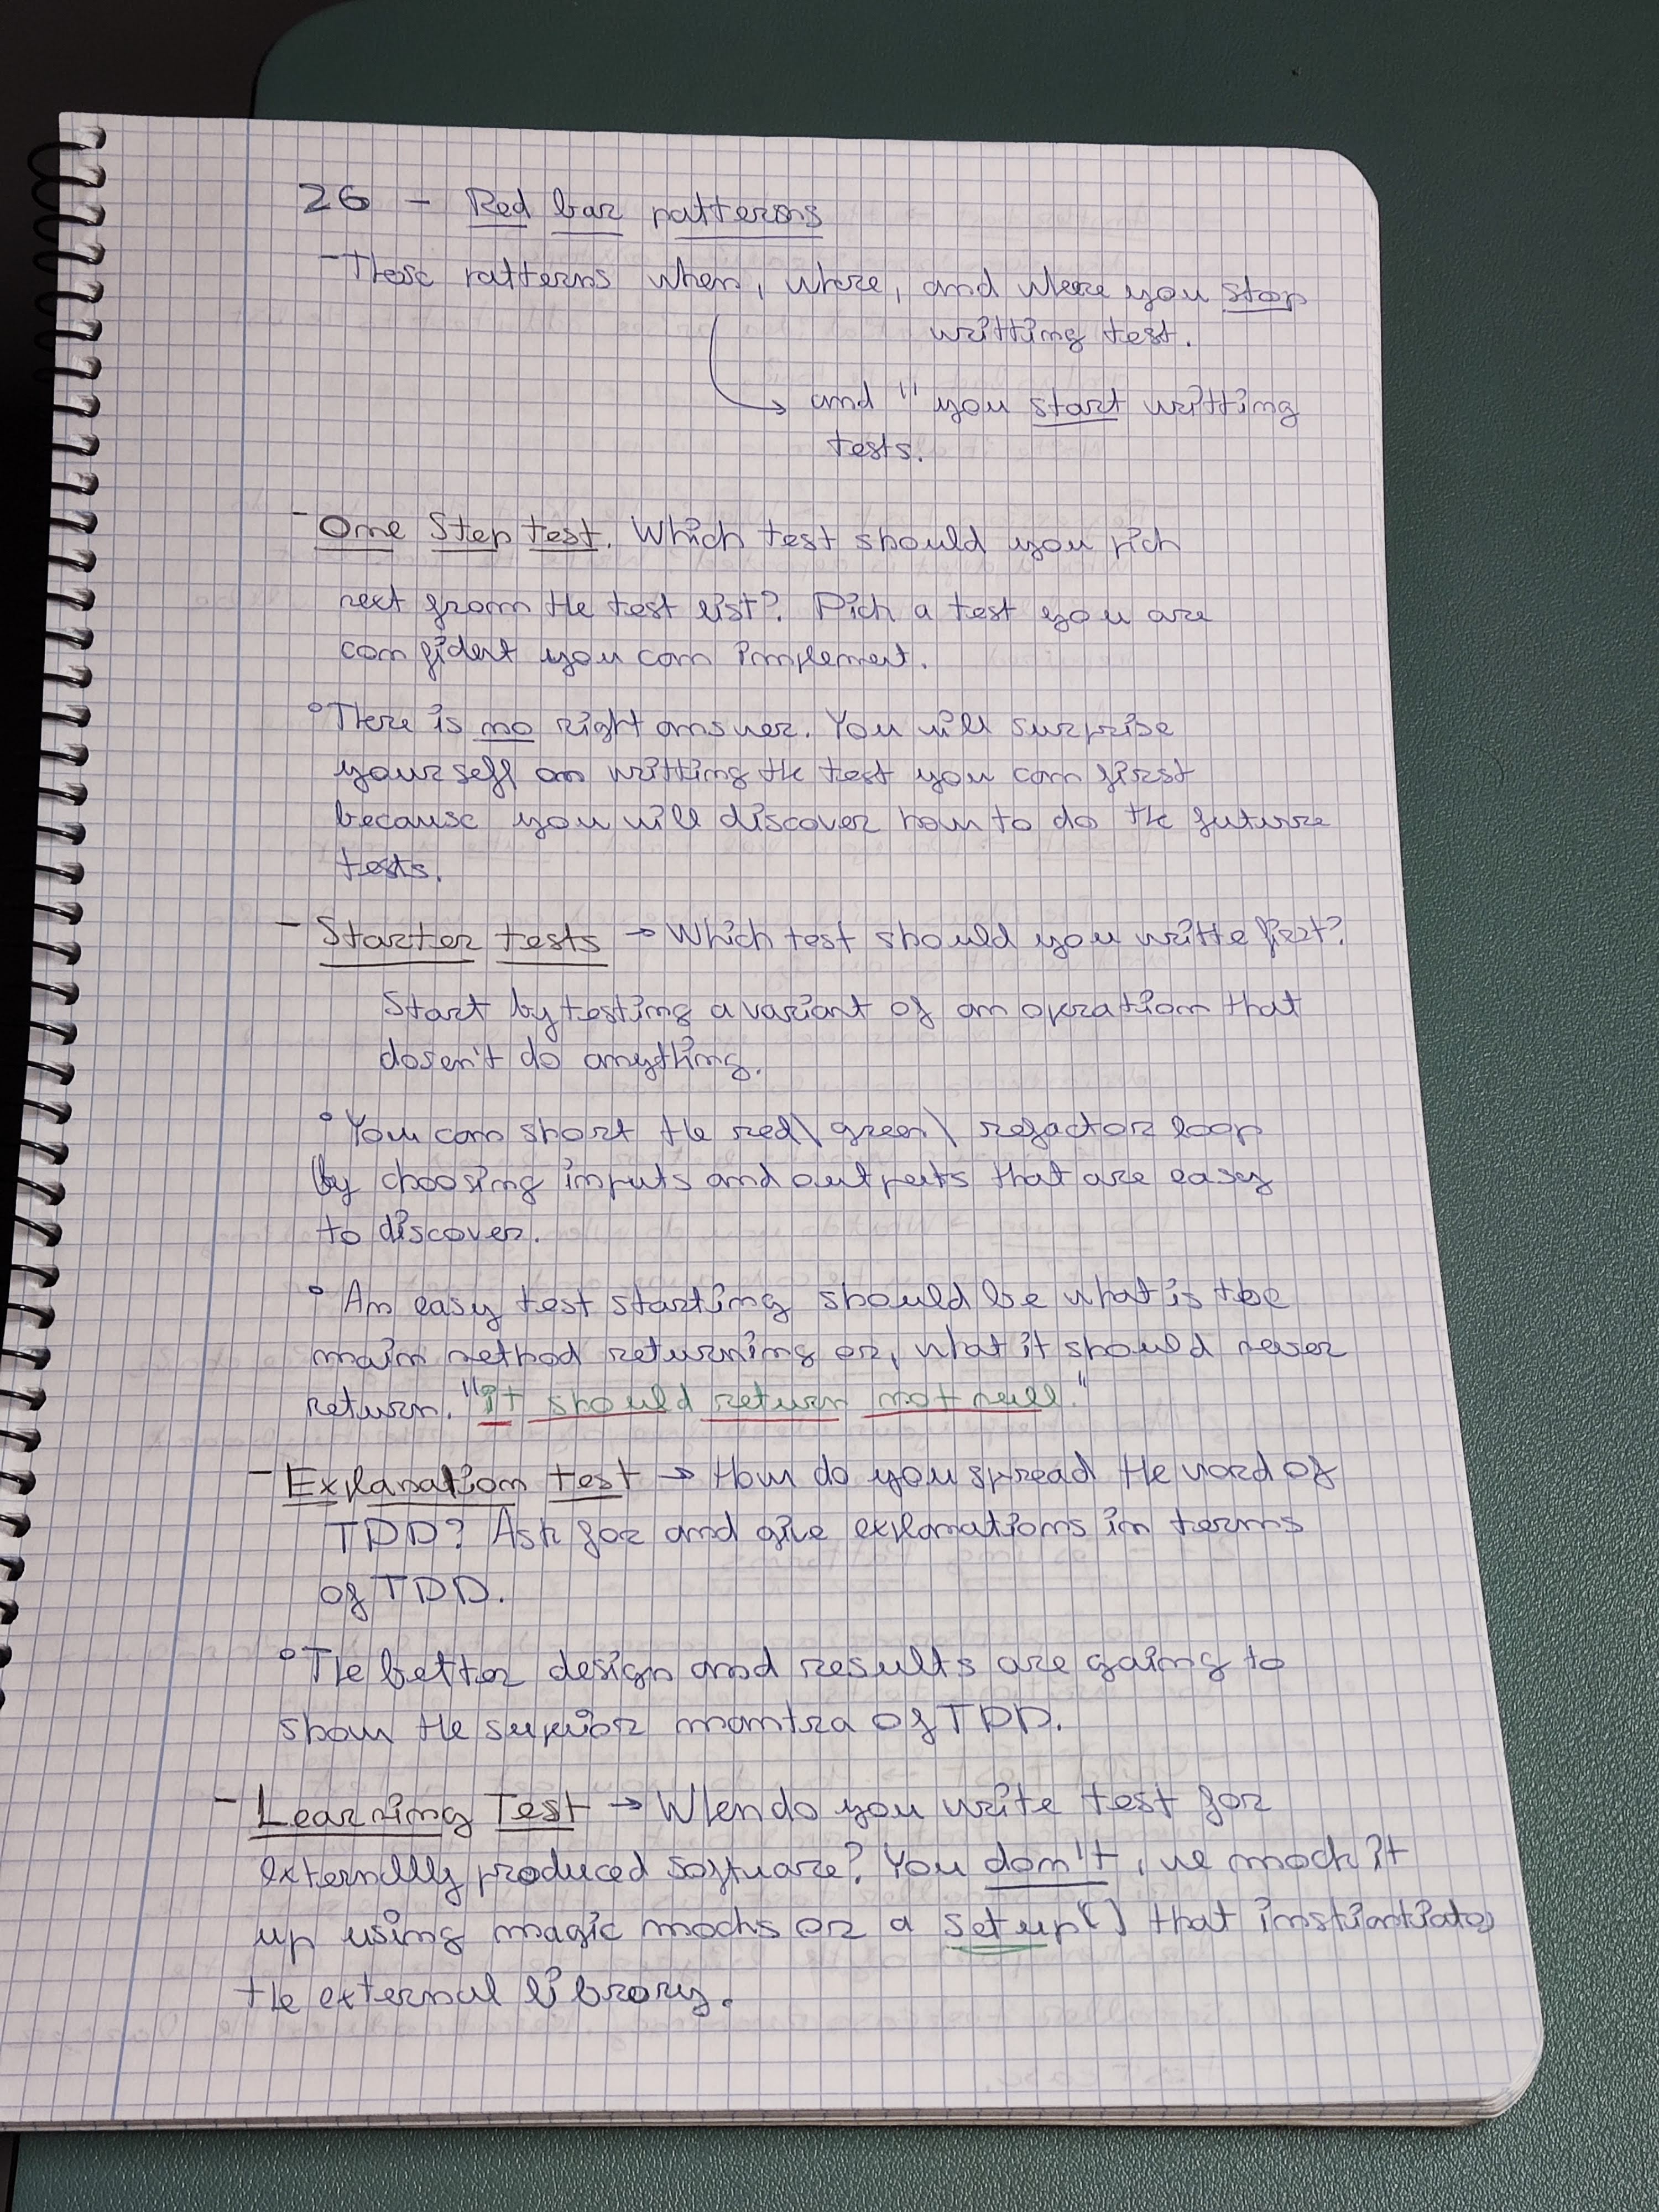 26 - Red bar patterns
- These patterns when, where, and where you stop
writting test.
→ and " you start writting
tests.
- One Step test. Which test should you pich
next from the test list?. Pich a test you are
confident you can implement.
° There is no right answer. You will surprise
yourself on writting the test you can first
because you will discover how to do the future
tests.
- Starter tests → Which test should you writte first?
Start by testing a variant of an operation that
dosen't do anything.
° You can short the red\ green\ refactor loop
by choosing inputs and outputs that are easy
to discover.
° An easy test starting should be what is the
main method returning or, what it should never
return. "it should return not null."
- Explanation test → How do you spread the word of
TDD? Ask for and give explanations in terms
of TDD.
° The better design and results are going to
show the superior mantra of TDD.
- Learning Test → When do you write test for
externally produced software? You don't, we moch it
up using magic mochs or a setup() that instiantiates
the external library.